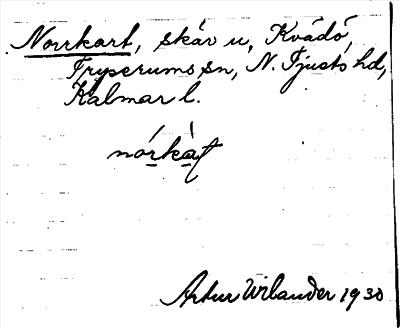 Norrkart, skär u, Kvädö,
Tryserums sn, N. Tjusts hd,
Kalmar l.
nórkàt
Artur Wilander 1930